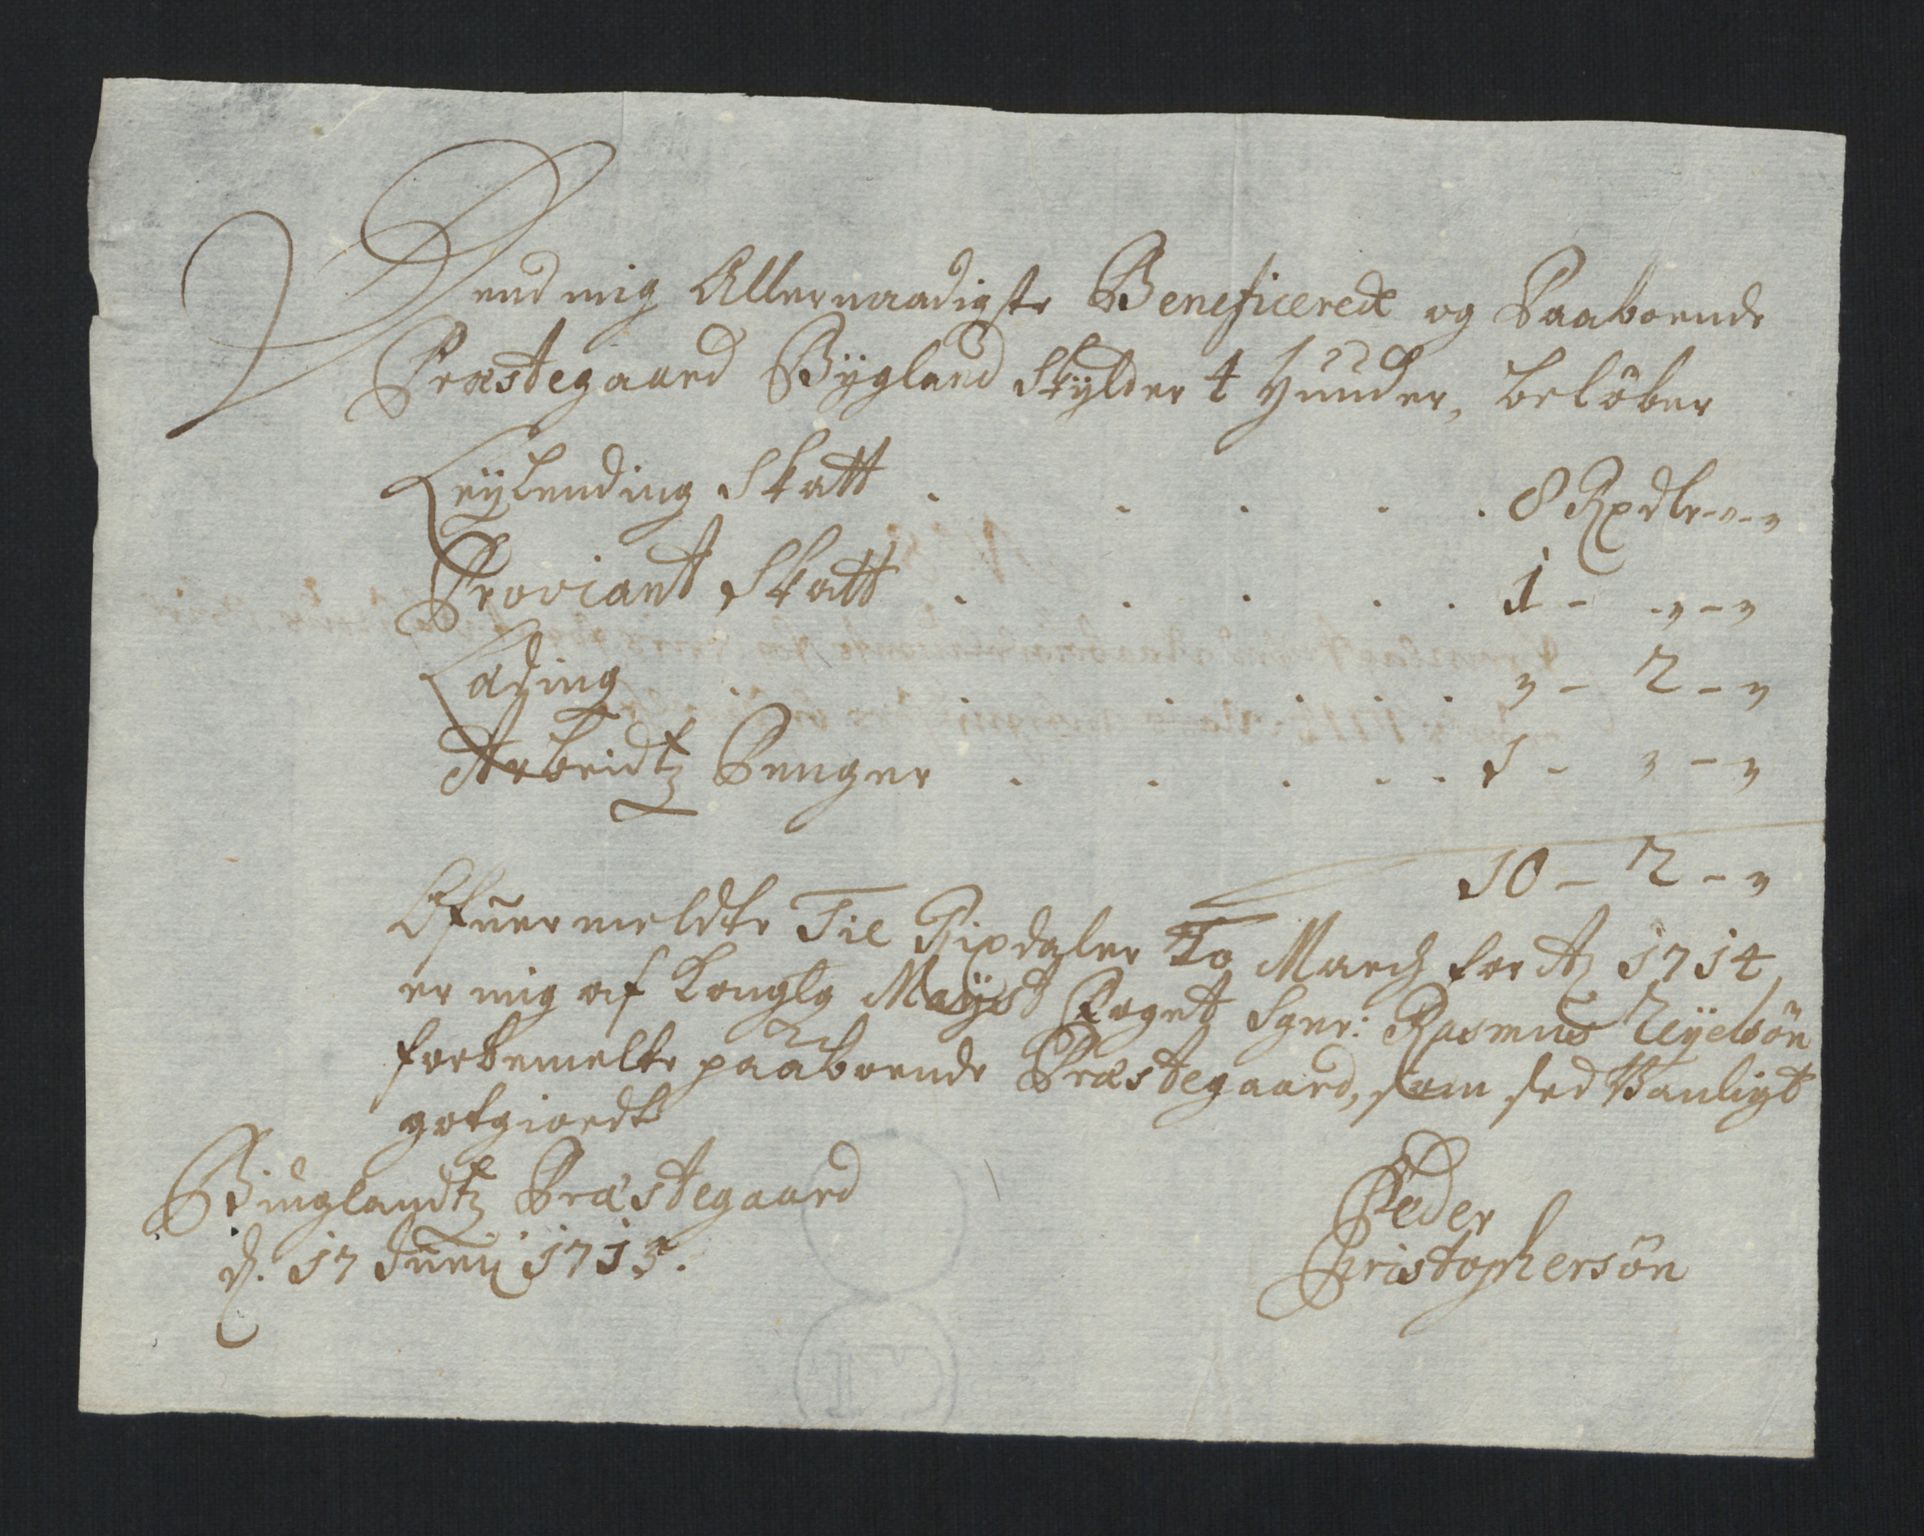 Dend mig Allernaadigste Beneficerede og Paaboende
Præstegaard Bÿgland Skÿlder 4 Huuder, beløber
Leÿlending Skatt . . . . . 8 Rxdlr - " - "
Proviant Skatt . . . . . 1 - " - "
Lading . " - 2 - "
Arbeidtz Penger . . . . . 1 - " - "
10 - 2 - "
Ofuermeldte Tie Rixdaler To March for Ao 1714
er mig af Konglg Maÿst Foget Sgnr: Rasmus
forbemelte paaboende Præstegaard, som sed Vanligt
gotgiordt
Biuglandtz Præstegaard
d. 17 Junij 1715.
Peder
Christophersøn